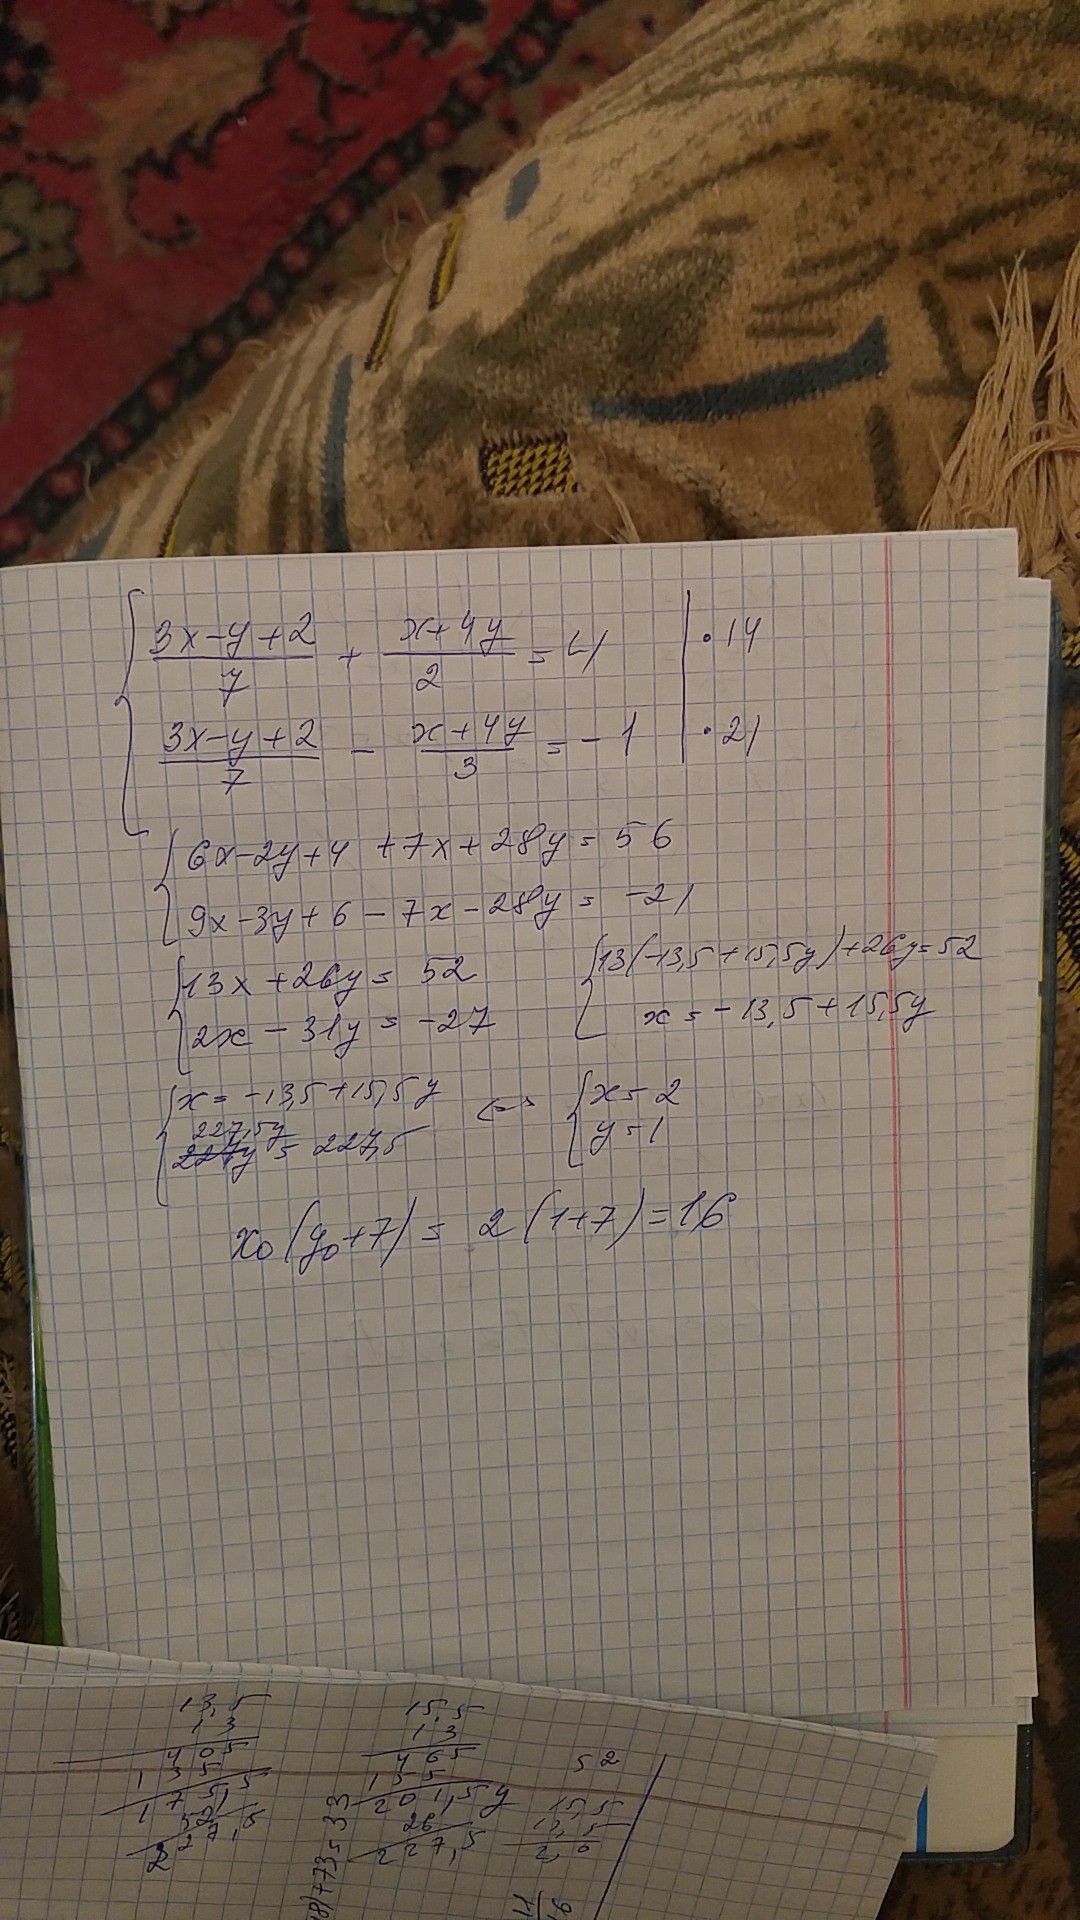 3x-y+2/7 + x+4y/2 = 4 | ·14
3x-y+2/7 - x+4y/3 = -1 | ·21
6x-2y+4 +7x+28y= 56
9x-3y+6-7x-28y= -21
13x+26y= 52
2x-31y= -27
13(-13,5+15,5y)+26y=52
x=-13,5+15,5y
x=-13,5+15,5y <=>
227,5y = 227,5
x=2
y=1
x0(y0+7)= 2(1+7)=16
13,5
13
405
135
175,5
52
227,5
15,5
13
465
155
201,5y
26
227,5
52
15,5
13,5
2,0